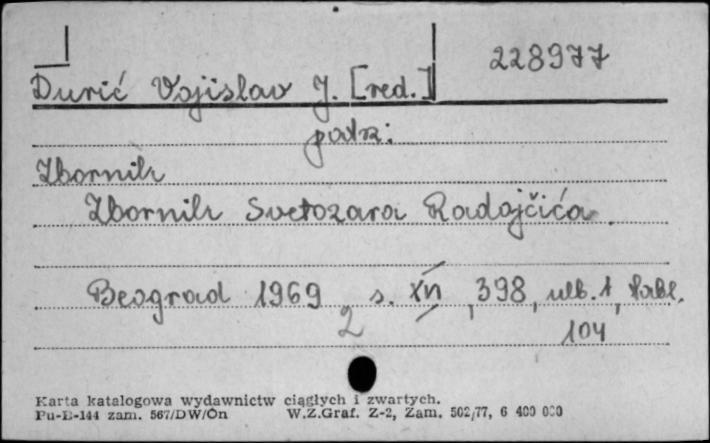 228977
Đurić Vojislav J. [red.]
patrz:
Zbornik
Zbornik Svetozara Radojčića.
Beograd 1969 2 s. XII, 398, ulb. 1, tabl.
104
Karta katalogowa wydawnictw ciągłych i zwartych.
Pu-E-144 zam. 567/DW/On W.Z.Graf. Z-2, Zam. 502/77, 6 400 000